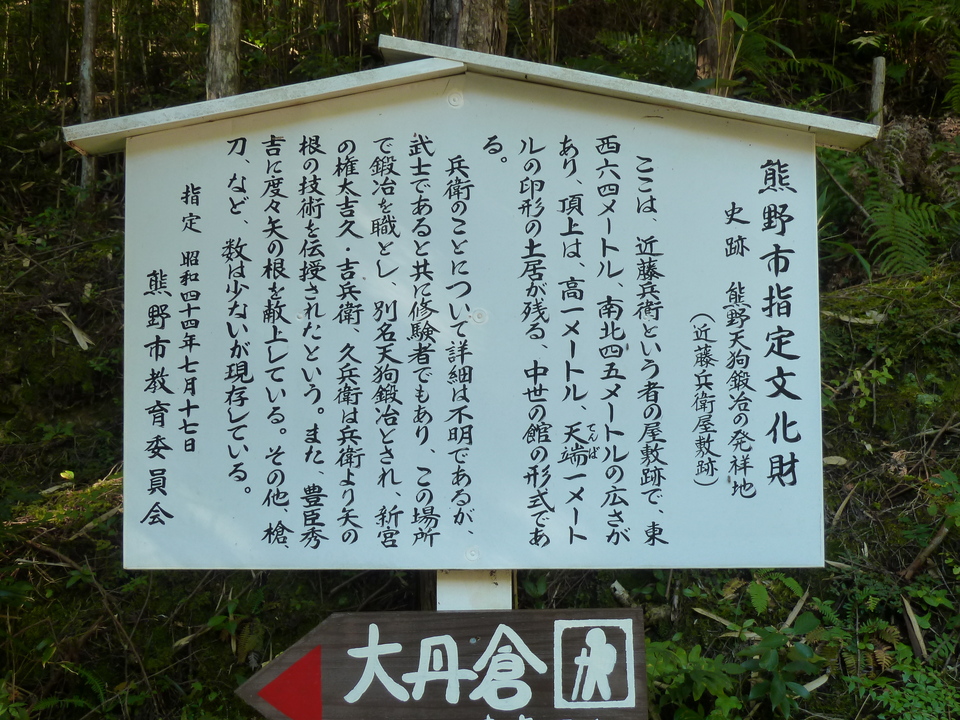 熊野市指定文化財
史跡　熊野天狗鍛冶の発祥地
（近藤兵衛屋敷跡）
ここは、近藤兵衛という者の屋敷跡で、東
西六四メートル、南北四五メートルの広さが
あり、頂上は、高一メートル、天端一メート
てんば
ルの印形の土居が残る、中世の館の形式であ
る。
兵衛のことについて詳細は不明であるが、
武士であると共に修験者でもあり、この場所
で鍛冶を職とし、別名天狗鍛冶とされ、新宮
の権太吉久・吉兵衛、久兵衛は兵衛より矢の
根の技術を伝授されたという。また、豊臣秀
吉に度々矢の根を献上している。その他、槍、
刀、など、数は少ないが現存している。
指定　昭和四十四年七月十七日
熊野市教育委員会
大丹倉